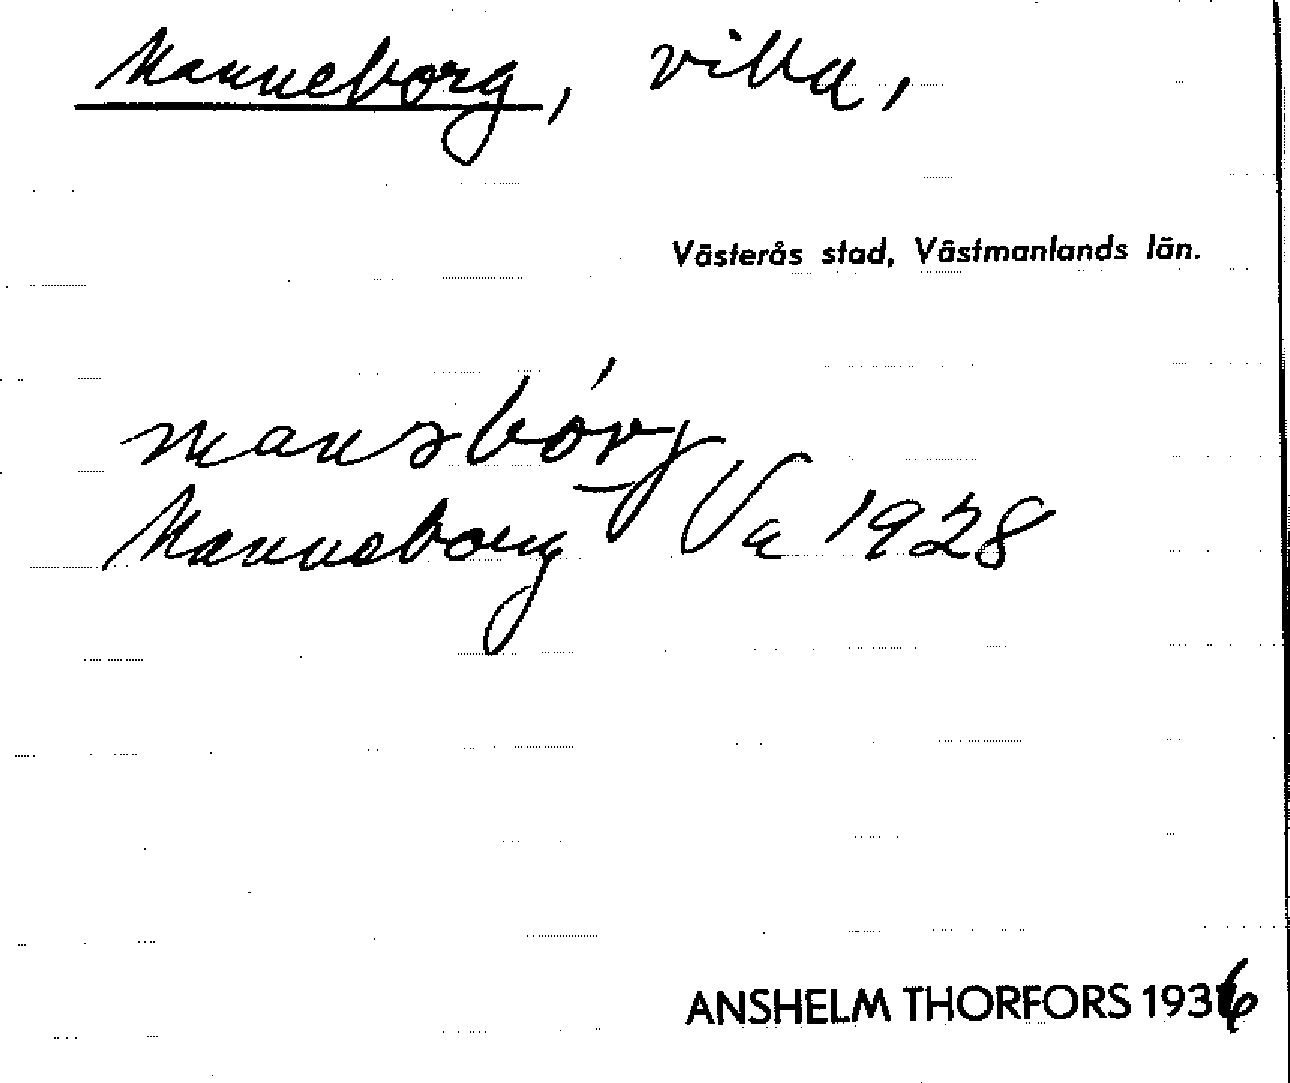 Manneborg, villa,
Västerås stad, Västmanlands län.
Manneborg Va 1928
ANSHELM THORFORS 1936